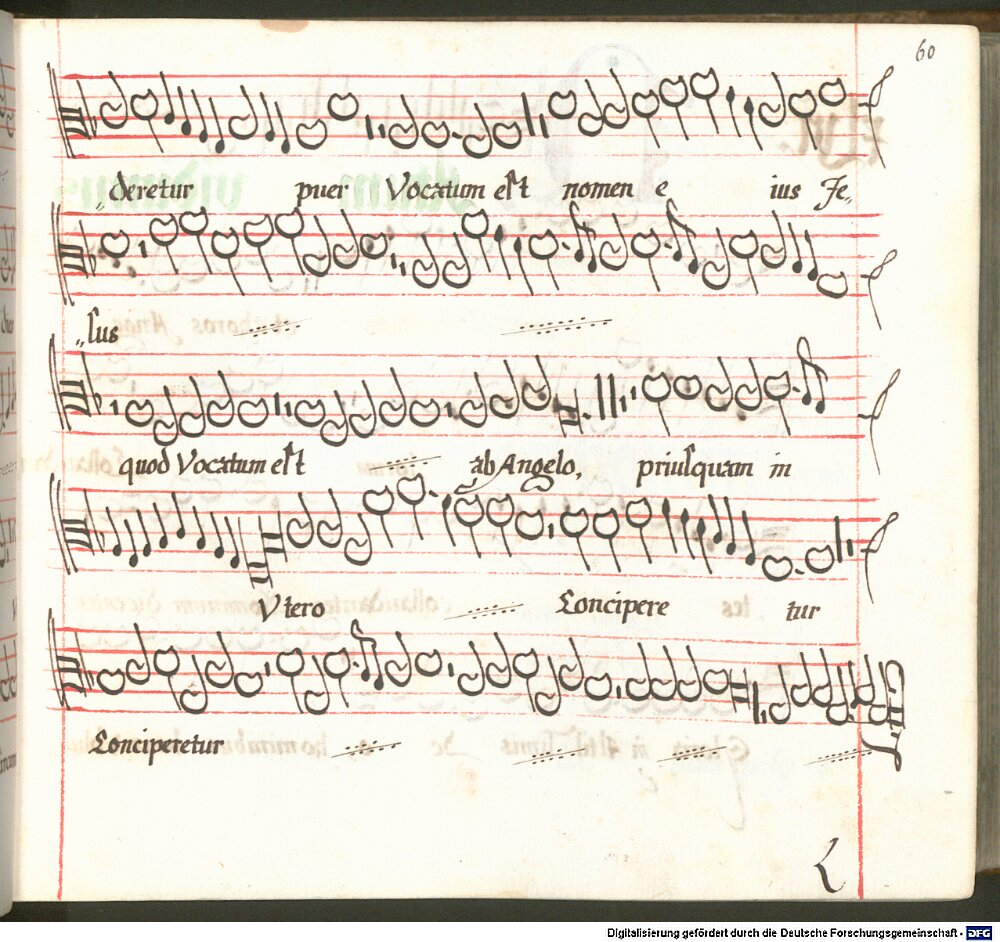 60
„deretur puer Vocatum eſt nomen e ius Je„
„ſus
quod Vocatum eſt ab Angelo, priuſquam in
Vtero Concipere tur
Conciperetur
Digitalisierung gefördert durch die Deutsche Forschungsgemeinschaft - DFG